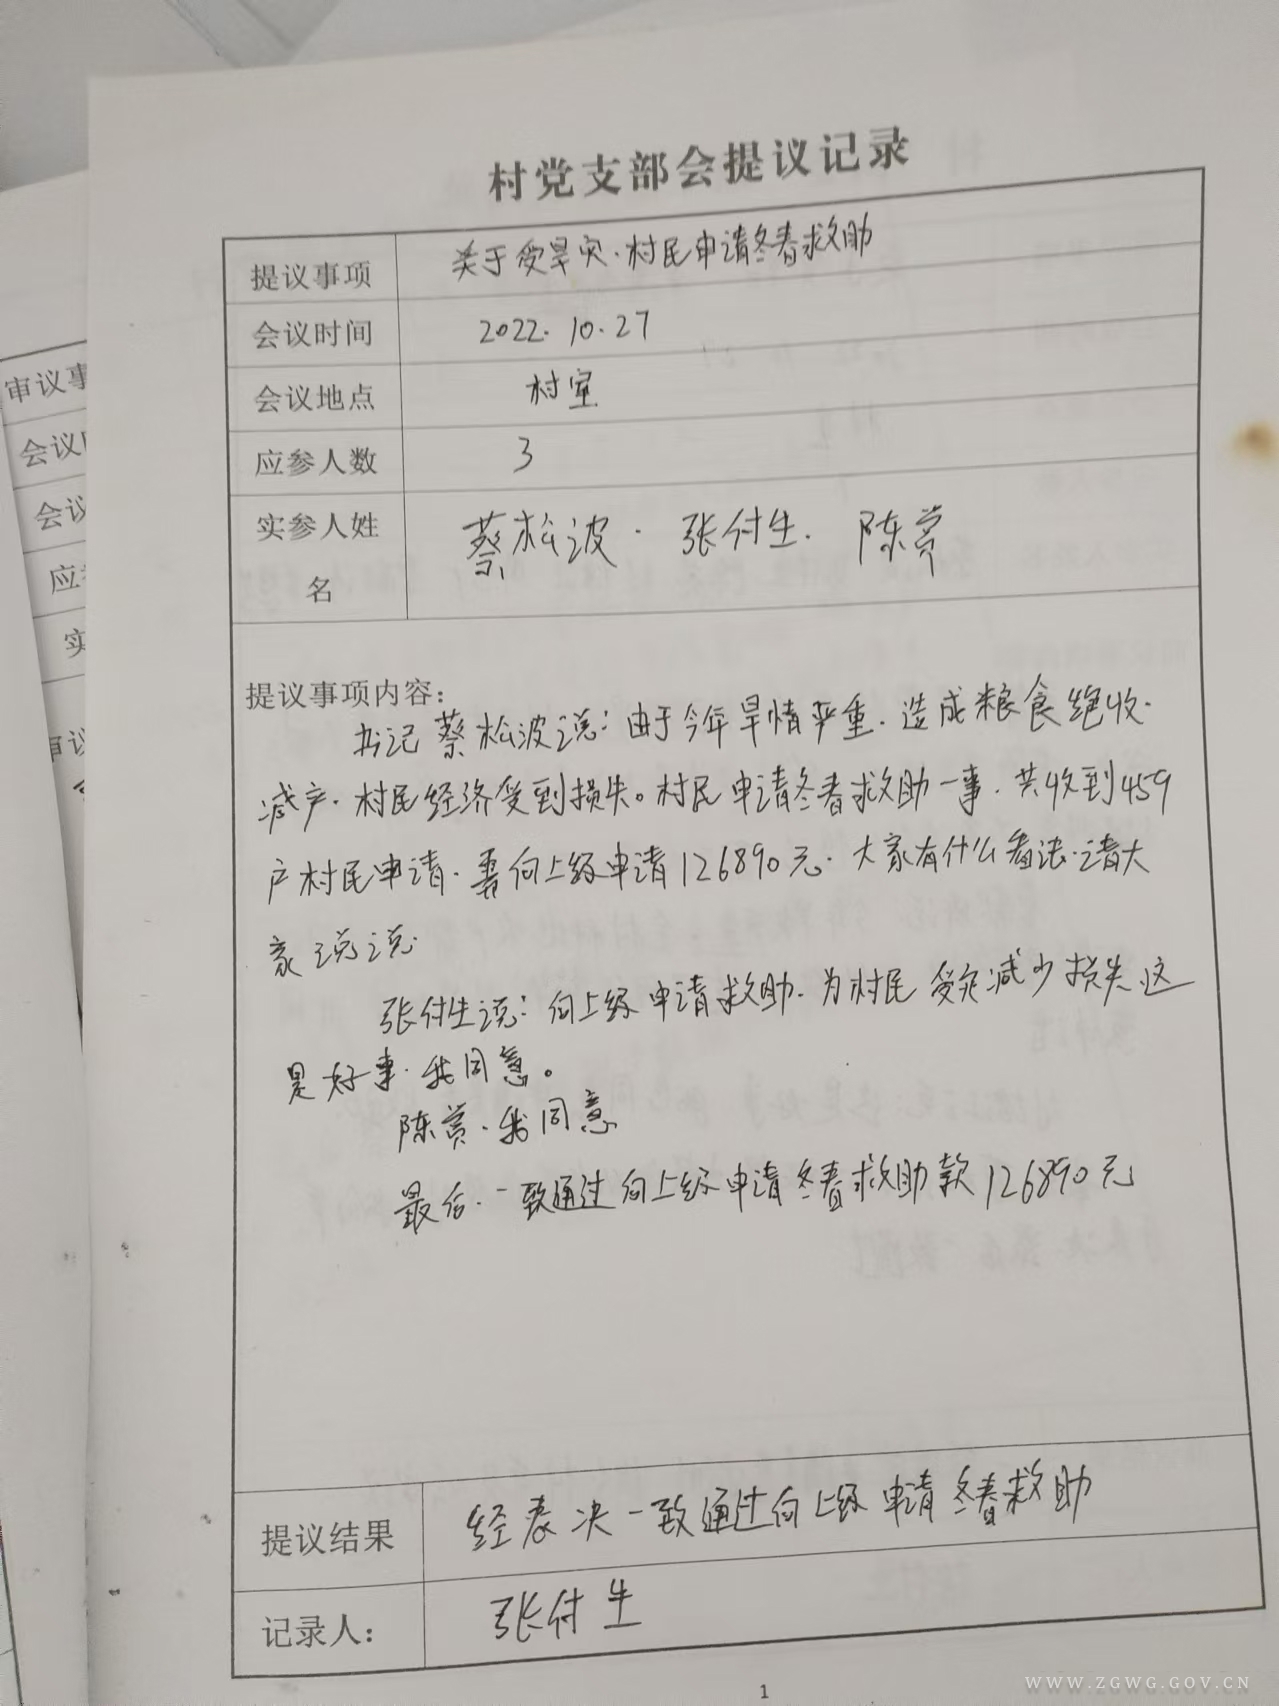 村党支部会提议记录
提议事项 关于受旱灾·村民申请冬春救助
会议时间 2022.10.27
会议地点 村室
应参人数 3
实参人姓名 蔡松波·张付生.陈赏
提议事项内容:
书记蔡松波说:由于今年旱情严重.造成粮食绝收.
减产.村民经济受到损失。村民申请冬春救助一事.共收到459
户村民申请.需向上级申请126890元.大家有什么看法.请大
家说说.
张付生说:向上级申请救助.为村民受灾减少损失.这
是好事.我同意。
陈赏.我同意
最后.一致通过向上级申请冬春救助款126890元
提议结果 经表决一致通过向上级申请冬春救助
记录人: 张付生
1
审议事
会议时
会议
应参
实
审议
WWW.ZGWG.GOV.CN